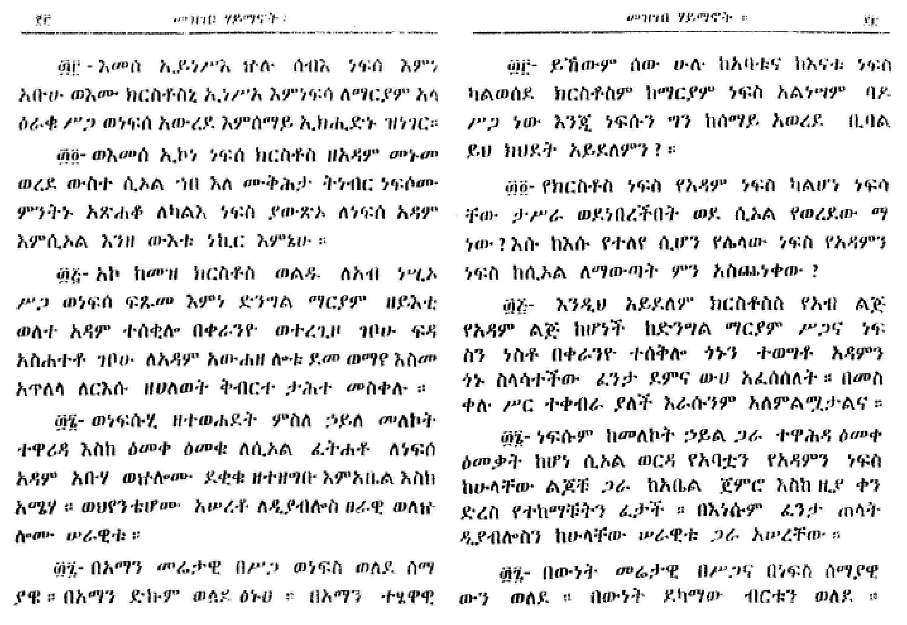 ፶፫ መዝገበ ሃይማኖት ፡
፴፫ - እመሰ ኢይነሥእ ኵሉ ሰብእ ነፍሰ እምነ
አቡሁ ወእሙ ክርስቶስኒ ኢነሥአ እምነፍሳ ለማርያም አላ
ዕራቁ ሥጋ ወነፍሰ አውረደ እምሰማይ ኢክሒድኑ ዝነገር።
፴፬- ወእመሰ ኢኮነ ነፍሰ ክርስቶስ ዘአዳም መኑመ
ወረደ ውስተ ሲኦል ኀበ እለ ሙቅሕታ ትነብር ነፍሶሙ
ምንትኑ አጽሐቆ ለካልእ ነፍስ ያውጽኦ ለነፍሰ አዳም
እምሲኦል እንዘ ውእቱ ነኪር እምኔሁ ።
፴፭- አኮ ከመዝ ክርስቶስ ወልዱ ለአብ ነሢኦ
ሥጋ ወነፍሰ ፍጹመ እምነ ድንግል ማርያም ዘይእቲ
ወለተ አዳም ተሰቂሎ በቀራንዮ ወተረጊዞ ገቦሁ ፍዳ
አስሐተቶ ገቦሁ ለአዳም አውሐዘ ሎቱ ደመ ወማየ እስመ
አጥለላ ለርእሱ ዘሀለወት ቅብርተ ታሕተ መስቀሉ ።
፴፮- ወነፍሱሂ ዘተወሐደት ምስለ ኃይለ መለኮት
ተዋሪዳ እስከ ዕመቀ ዕመቁ ለሲኦል ፈትሐቶ ለነፍሰ
አዳም አቡሃ ወኵሎሙ ደቂቁ ዘተዘግቡ እምአቤል እስከ
አሜሃ ። ወህየንቴሆሙ አሠረቶ ለዲያብሎስ ፀራዊ ወለኵ
ሎሙ ሠራዊቱ ።
፴፯- በአማን መሬታዊ በሥጋ ወነፍስ ወለደ ሰማ
ያዌ ። በአማን ድኩም ወለደ ዕኑህ ። በአማን ተሄዋዊ
መዝገበ ሃይማኖት ።
፴፫- ይኸውም ሰው ሁሉ ከአባቱና ከእናቱ ነፍስ
ካልወሰደ ክርስቶስም ከማርያም ነፍስ አልነሣም ባዶ
ሥጋ ነው እንጂ ነፍሱን ግን ከሰማይ አወረደ ቢባል
ይህ ክህደት አይደለምን ? ።
፴፬- የክርስቶስ ነፍስ የአዳም ነፍስ ካልሆነ ነፍሳ
ቸው ታሥራ ወደነበረችበት ወደ ሲኦል የወረደው ማ
ነው ? እሱ ከእሱ የተለየ ሲሆን የሌላው ነፍስ የአዳምን
ነፍስ ከሲኦል ለማውጣት ምን አስጨነቀው ?
፴፭- እንዲህ አይደለም ክርስቶስስ የአብ ልጅ
የአዳም ልጅ ከሆነች ከድንግል ማርያም ሥጋና ነፍ
ስን ነስቶ በቀራንዮ ተሰቅሎ ጎኑን ተወግቶ አዳምን
ጎኑ ስላሳተችው ፈንታ ደምና ውሀ አፈሰሰለት ። በመስ
ቀሉ ሥር ተቀብራ ያለች እራሱንም አለምልሟታልና ።
፴፮- ነፍሱም ከመለኮት ኃይል ጋራ ተዋሕዳ ዕመቀ
ዕመቃት ከሆነ ሲኦል ወርዳ የአባቷን የአዳምን ነፍስ
ከሁላቸው ልጆቹ ጋራ ከአቤል ጀምሮ እስከ ዚያ ቀን
ድረስ የተከማቹትን ፈታች ። በእነሱም ፈንታ ጠላት
ዲያብሎስን ከሁላቸው ሠራዊቱ ጋራ አሠረቸው ።
፴፯- በውነት መሬታዊ በሥጋና በነፍስ ሰማያዊ
ውን ወለደ ። በውነት ደካማው ብርቱን ወለደ ።